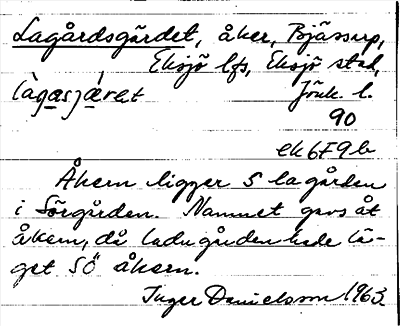 Lagårdsgärdet, åker, Bjässarp,
Eksjö lfs, Eksjö stad,
Jönk. l.
90
ek 6F9b
Åkern ligger S lagården
i Sörgården. Namnet gavs åt
åkern, då ladugården hade lä-
get SÖ åkern.
Inger Danielsson 1963